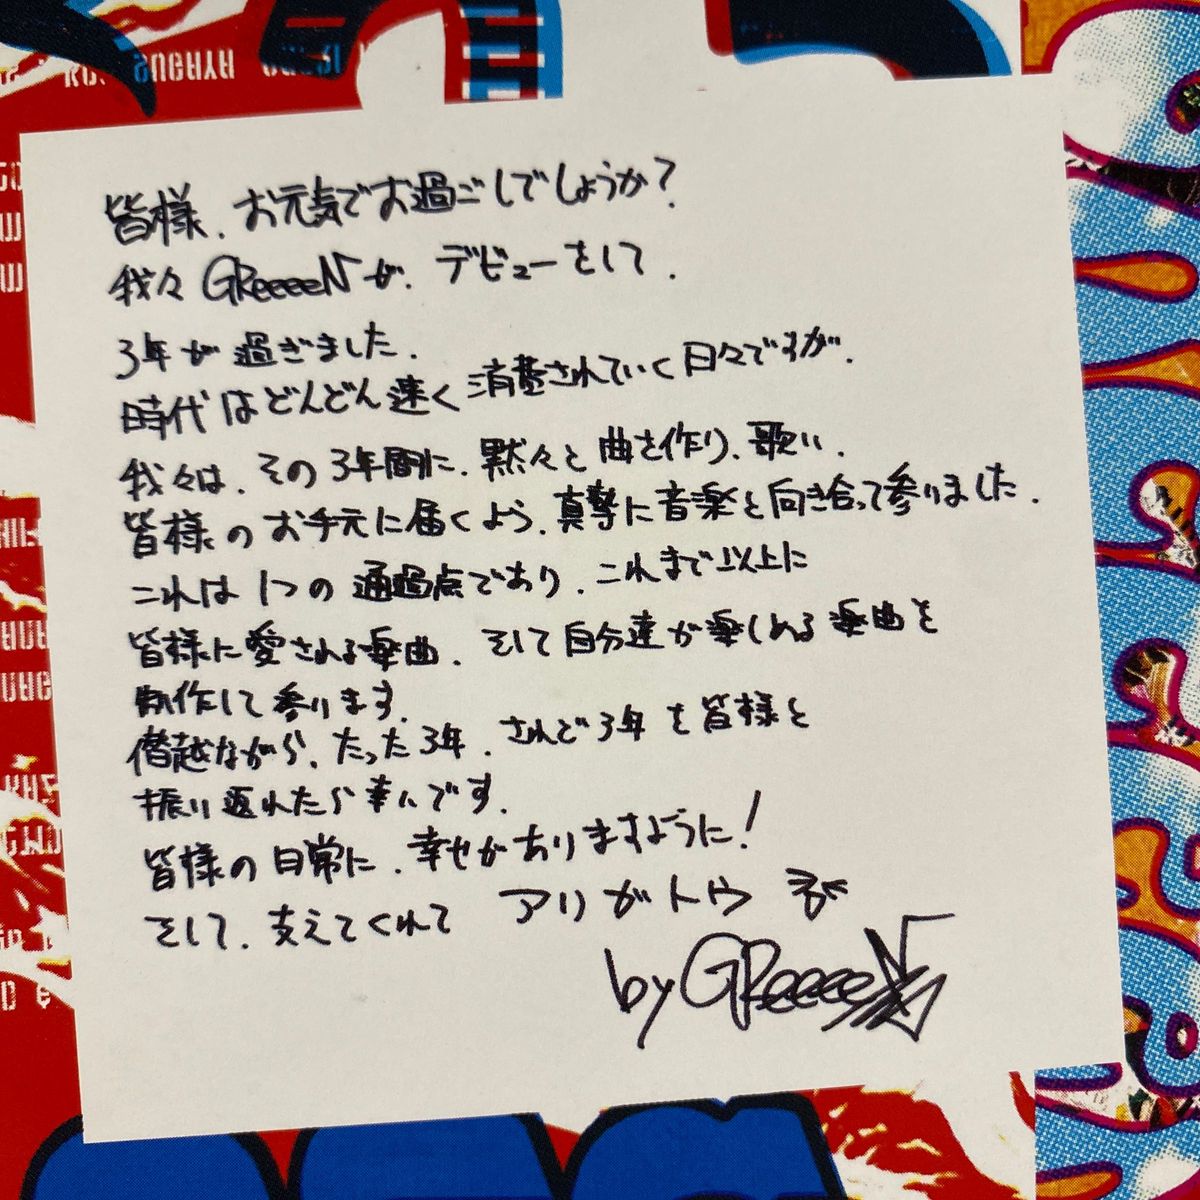 皆様、お元気でお過ごしでしょうか?
我々GReeeeNが、デビューをして、
3年が過ぎました。
時代はどんどん速く消費されていく日々ですが、
我々は、その3年間に、黙々と曲を作り、歌い、
皆様のお手元に届くよう、真摯に音楽と向き合って参りました。
これは1つの通過点であり、これまで以上に
皆様に愛される楽曲、そして自分達が楽しめる楽曲を
制作して参ります。
僭越ながら、たった3年、されど3年を皆様と
振り返れたら幸いです。
皆様の日常に、幸せがありますように!
そして、支えてくれて アリガトウ
by GReeeeN